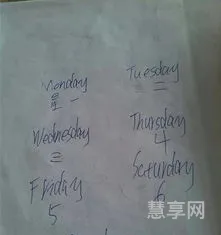 Monday
星一
Tuesday
二
Wednesday
三
Thursday
4
Friday
5
Saturday
6
慧享网